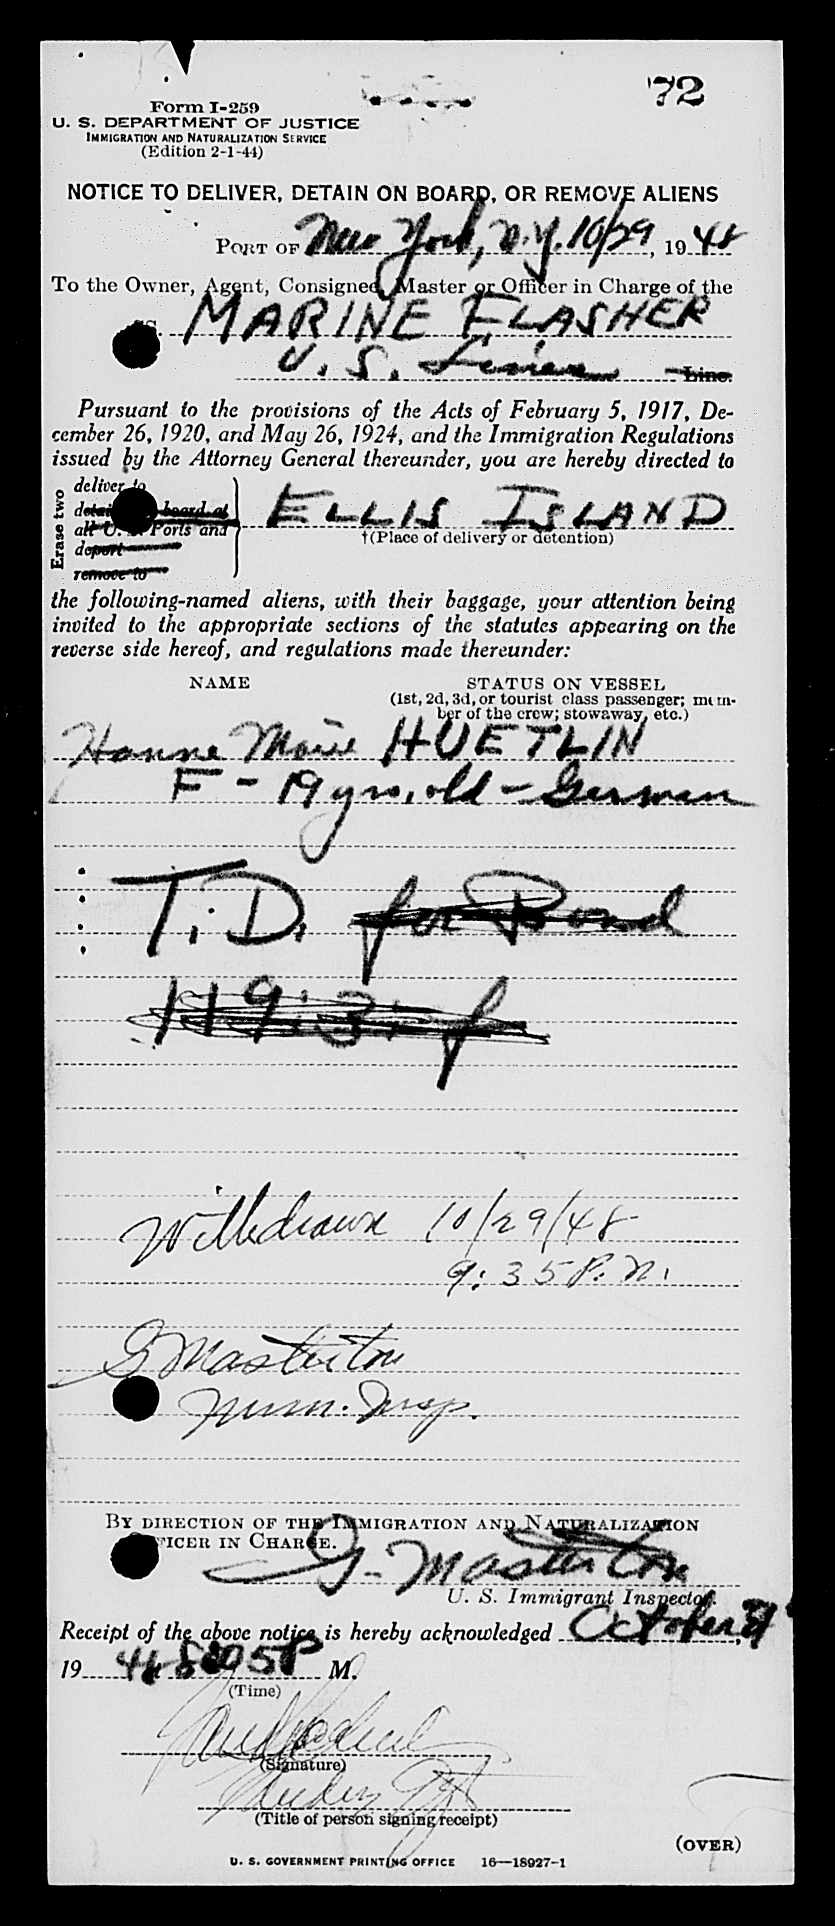 72
Form I-259
U. S. DEPARTMENT OF JUSTICE
IMMIGRATION AND NATURALIZATION SERVICE
(Edition 2-1-44)
NOTICE TO DELIVER, DETAIN ON BOARD, OR REMOVE ALIENS
PORT OF New York, N.Y. 10/29, 19 48
To the Owner, Agent, Consignee, Master or Officer in Charge of the
SS. MARINE FLASHER
U. S. Lines Line.
Pursuant to the provisions of the Acts of February 5, 1917, De-
cember 26, 1920, and May 26, 1924, and the Immigration Regulations
issued by the Attorney General thereunder, you are hereby directed to
Erase two
deliver to
board at
all U. S. Ports and
deport
remove to
ELLIS ISLAND
†(Place of delivery or detention)
the following-named aliens, with their baggage, your attention being
invited to the appropriate sections of the statutes appearing on the
reverse side hereof, and regulations made thereunder:
NAME STATUS ON VESSEL
(1st, 2d, 3d, or tourist class passenger; mem-
ber of the crew; stowaway, etc.)
Hanne Marie HUETLIN
F - 19 yrs. old - German
T. D. for Bond
Withdrawn 10/29/48
9:35 P. M.
G Masterton
Imm. Insp.
BY DIRECTION OF THE IMMIGRATION AND NATURALIZATION
OFFICER IN CHARGE.
G. Masterton
U. S. Immigrant Inspector.
Receipt of the above notice is hereby acknowledged October
19 48 M.
(Time)
(Signature)
(Title of person signing receipt)
(OVER)
U. S. GOVERNMENT PRINTING OFFICE 16—18927-1